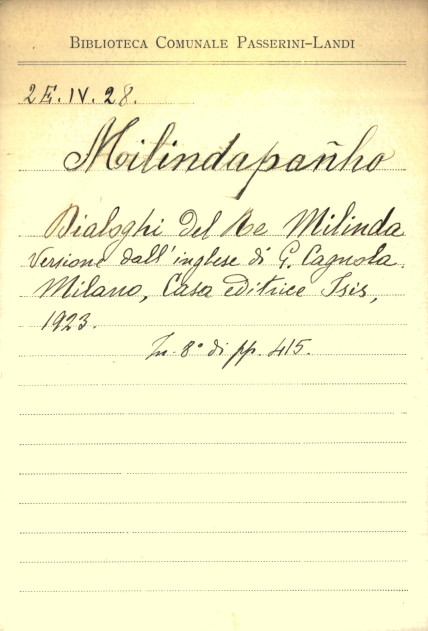 BIBLIOTECA COMUNALE PASSERINI-LANDI
2E.IV.28.
Milindapañho
Dialoghi del Re Milinda
Versione dall'inglese di G. Cagnola.
Milano, Casa editrice Isis,
1923.
In-8° di pp. 415.